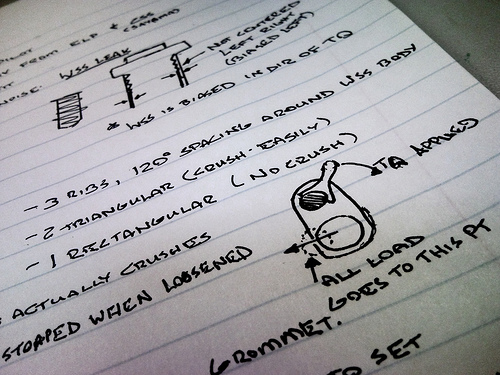 PILOT
FROM ELP & CSS
(SAYAMA)
NOISE: WSS LEAK
NOT CENTERED
LEFT-RIGHT
(BIASED LEFT)
* WSS IS BIASED IN DIR OF TQ
- 3 RIBS, 120° SPACING AROUND WSS BODY
- 2 TRIANGULAR (CRUSH-EASILY)
- 1 RECTANGULAR (NO CRUSH)
TQ APPLIED
ACTUALLY CRUSHES
STOPPED WHEN LOOSENED
ALL LOAD
GOES TO THIS PT
GROMMET.
TO SET